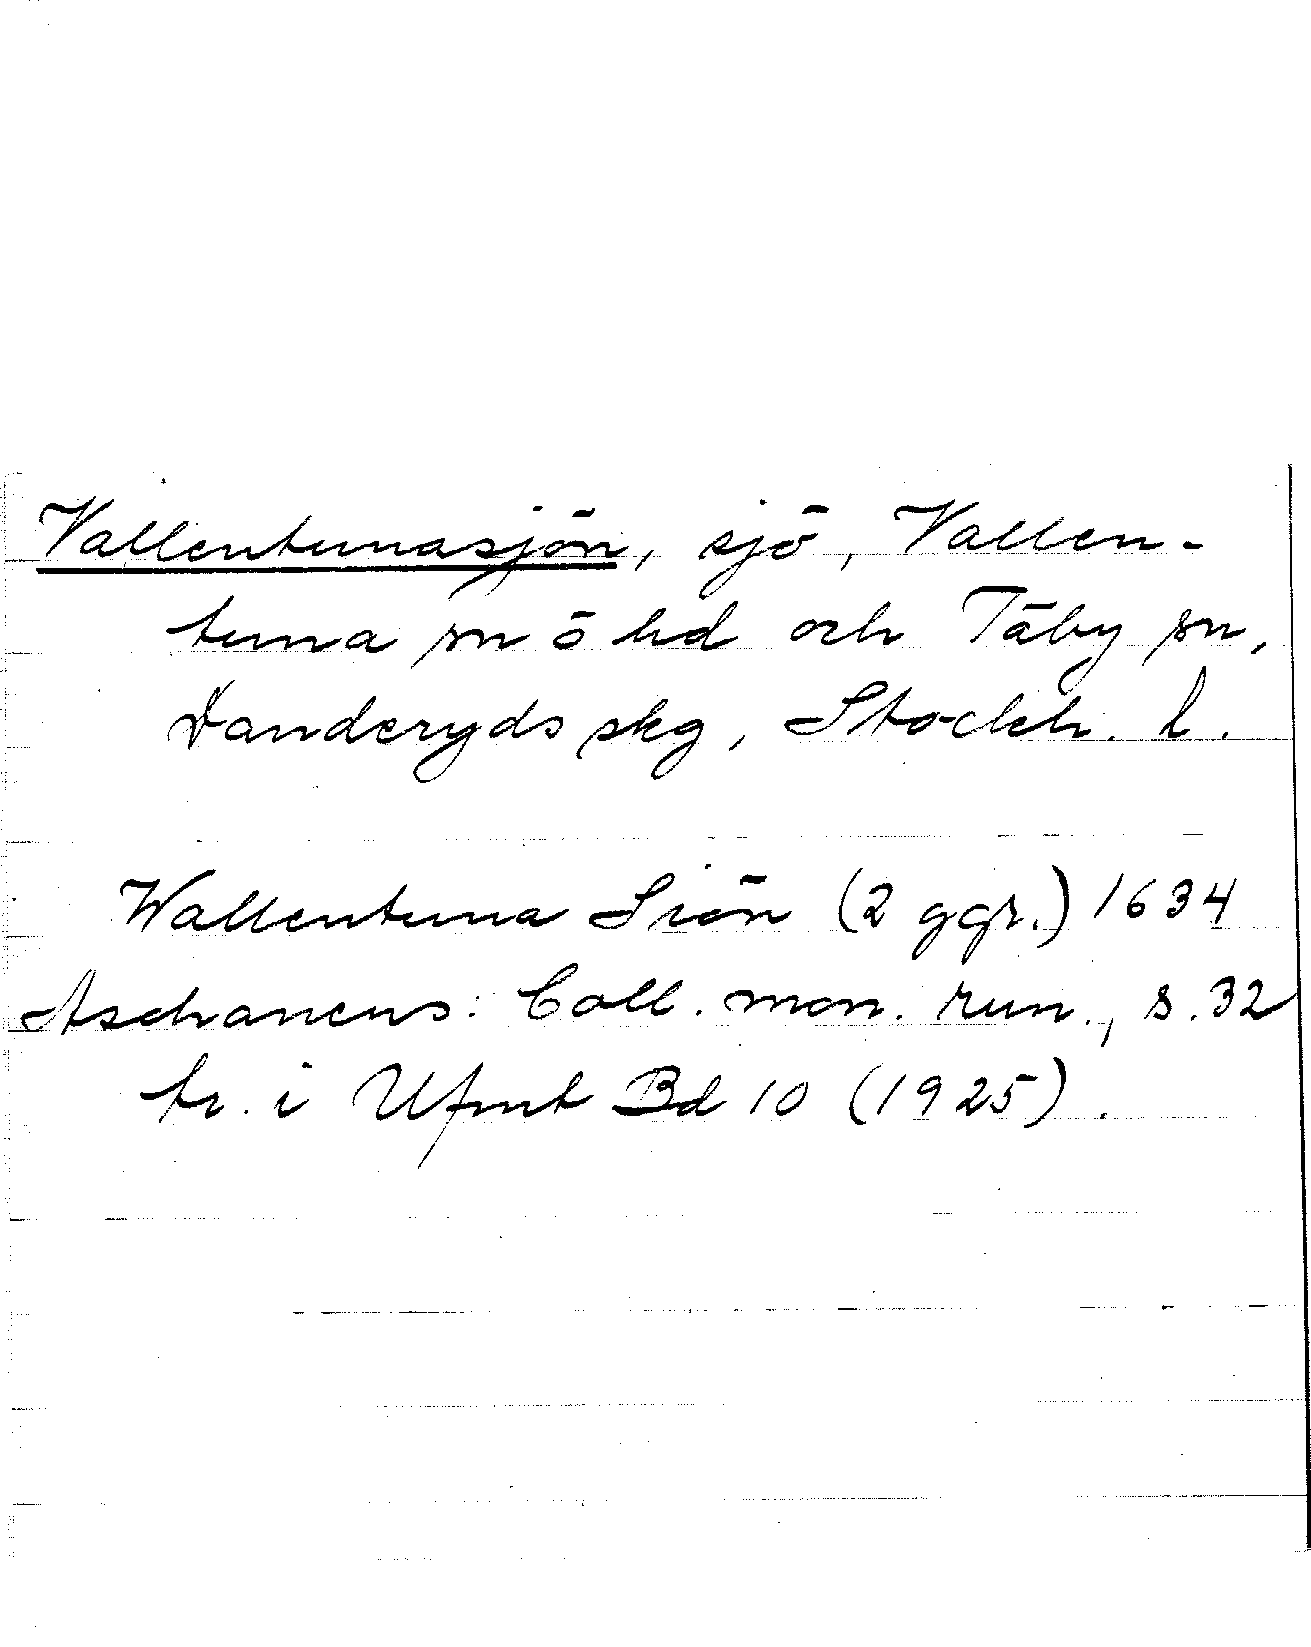 Vallentunasjön, sjö, Vallen-
tuna sn ö hd och Täby sn,
Danderyds skg, Stockh. l.
Wallentuna Siön (2 ggr.) 1634
Aschaneus: Coll. mon. run., s. 32
tr. i Ufmt Bd 10 (1925).